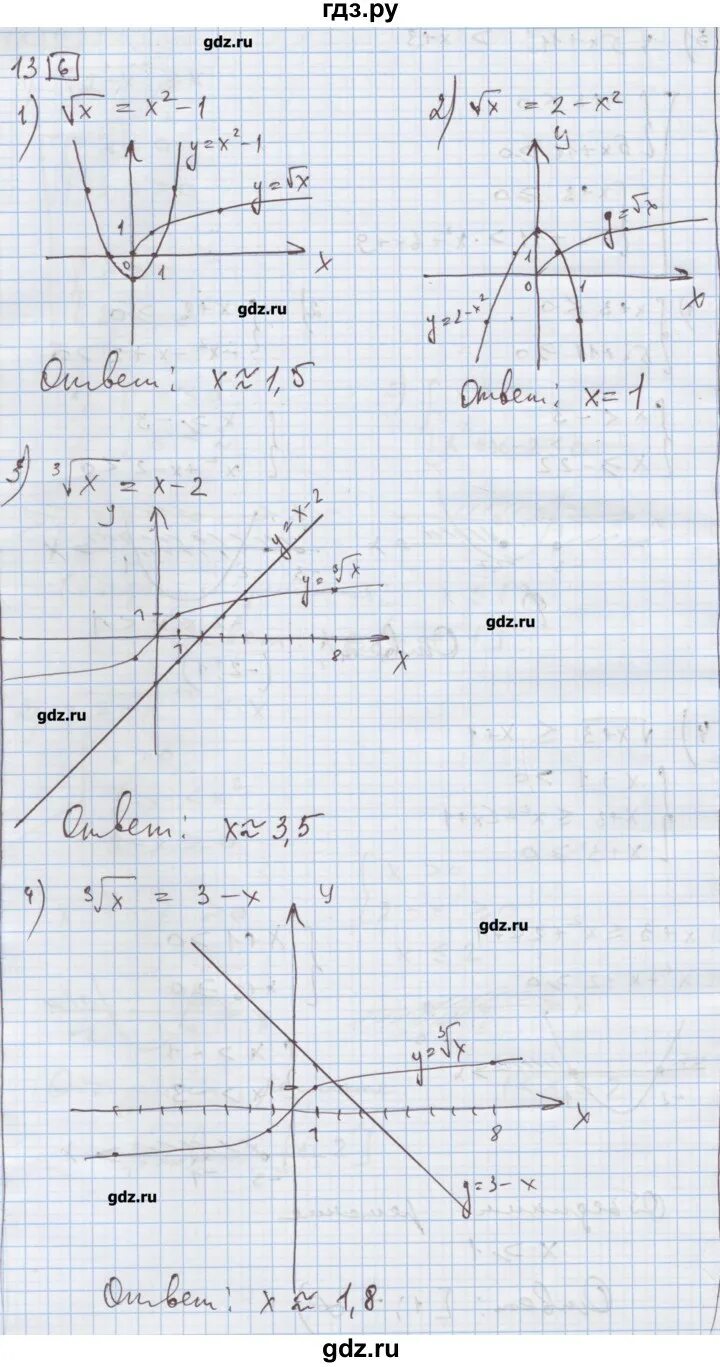 гдз.ру
gdz.ru
13 6
1) √x = x² - 1
y = x² - 1
y = √x
1
0
1
x
gdz.ru
Ответ: x ≈ 1,5
2) √x = 2 - x²
y
y = √x
1
0
1
x
y = 2 - x²
Ответ: x = 1.
3) ³√x = x - 2
y
y = x - 2
y = ³√x
1
1
8
x
gdz.ru
gdz.ru
Ответ: x ≈ 3,5
4) ³√x = 3 - x
y
gdz.ru
y = ³√x
1
1
8
x
y = 3 - x
gdz.ru
Ответ: x ≈ 1,8
gdz.ru